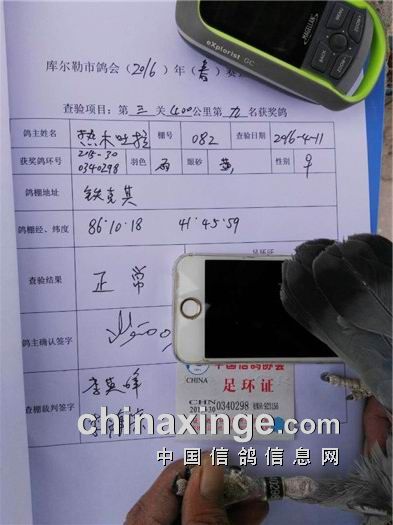 MAGELLAN
eXplorist GC
BACK
MENU
库尔勒市鸽会（2016）年（春）赛
查验项目：第三关400公里第九名获奖鸽
鸽主姓名 热木吐拉 棚号 082 查验日期 2016-4-11
获奖鸽环号 2015-30 0340298 羽色 雨 眼砂 黄 性别 ♀
鸽棚地址 铁克其
鸽棚经、纬度 86·10·18 41·45·59
查验结果 正常
足环证
鸽主确认签字
中国信鸽协会
足环证
CHINA
CHN
0340298
查棚裁判签字 李英峰
chinaxinge.com
中国信鸽信息网